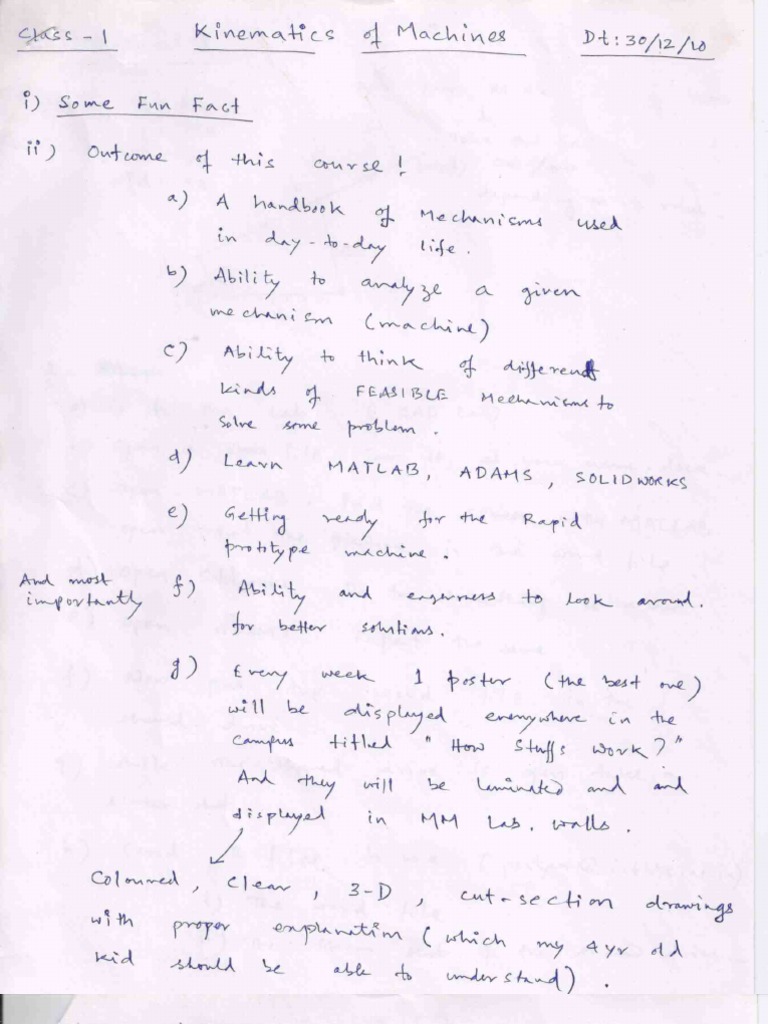 Class - 1 Kinematics of Machines Dt: 30/12/10
i) Some Fun Fact
ii) Outcome of this course!
a) A handbook of Mechanisms used
in day-to-day life.
b) Ability to analyze a given
mechanism (machine)
c) Ability to think of different
kinds of FEASIBLE Mechanisms to
solve some problem.
d) Learn MATLAB, ADAMS, SOLIDWORKS
e) Getting ready for the Rapid
prototype machine.
And most
importantly
f) Ability and eagerness to look around.
for better solutions.
g) Every week 1 poster (the best one)
will be displayed everywhere in the
campus titled "How Stuffs Work?"
And they will be laminated and and
displayed in MM Lab. walls.
Coloured, clear, 3-D, cut-section drawings
with proper explanation (which my 4 yr old
kid should be able to understand).